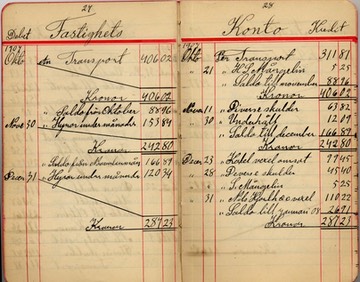 27
Debet Fastighets
1907
Okto An Transport 406 02
Kronor 406 02
" Saldo från Oktober 88 96
Nove 30 " Hyror under månader 153 84
Kronor 242 80
" Saldo från November 166 89
Decen 31 " Hyror under månader 120 34
Kronor 287 23
28
Konto Kredit
1907
Okto Per Transport 311 81
" 21 " H. P. Mångelin 5 25
" Saldo till november 88 96
Kronor 406 02
Nove 11 " Diverse skulder 63 82
" 30 " Underhåll 12 09
" Saldo till december 166 89
Kronor 242 80
Decen 23 " 77 45
" 28 " Diverse skulder 45 40
" S. Mångelin 5 25
" 31 " 110 22
" Saldo till januari 08 26 91
Kronor 287 23